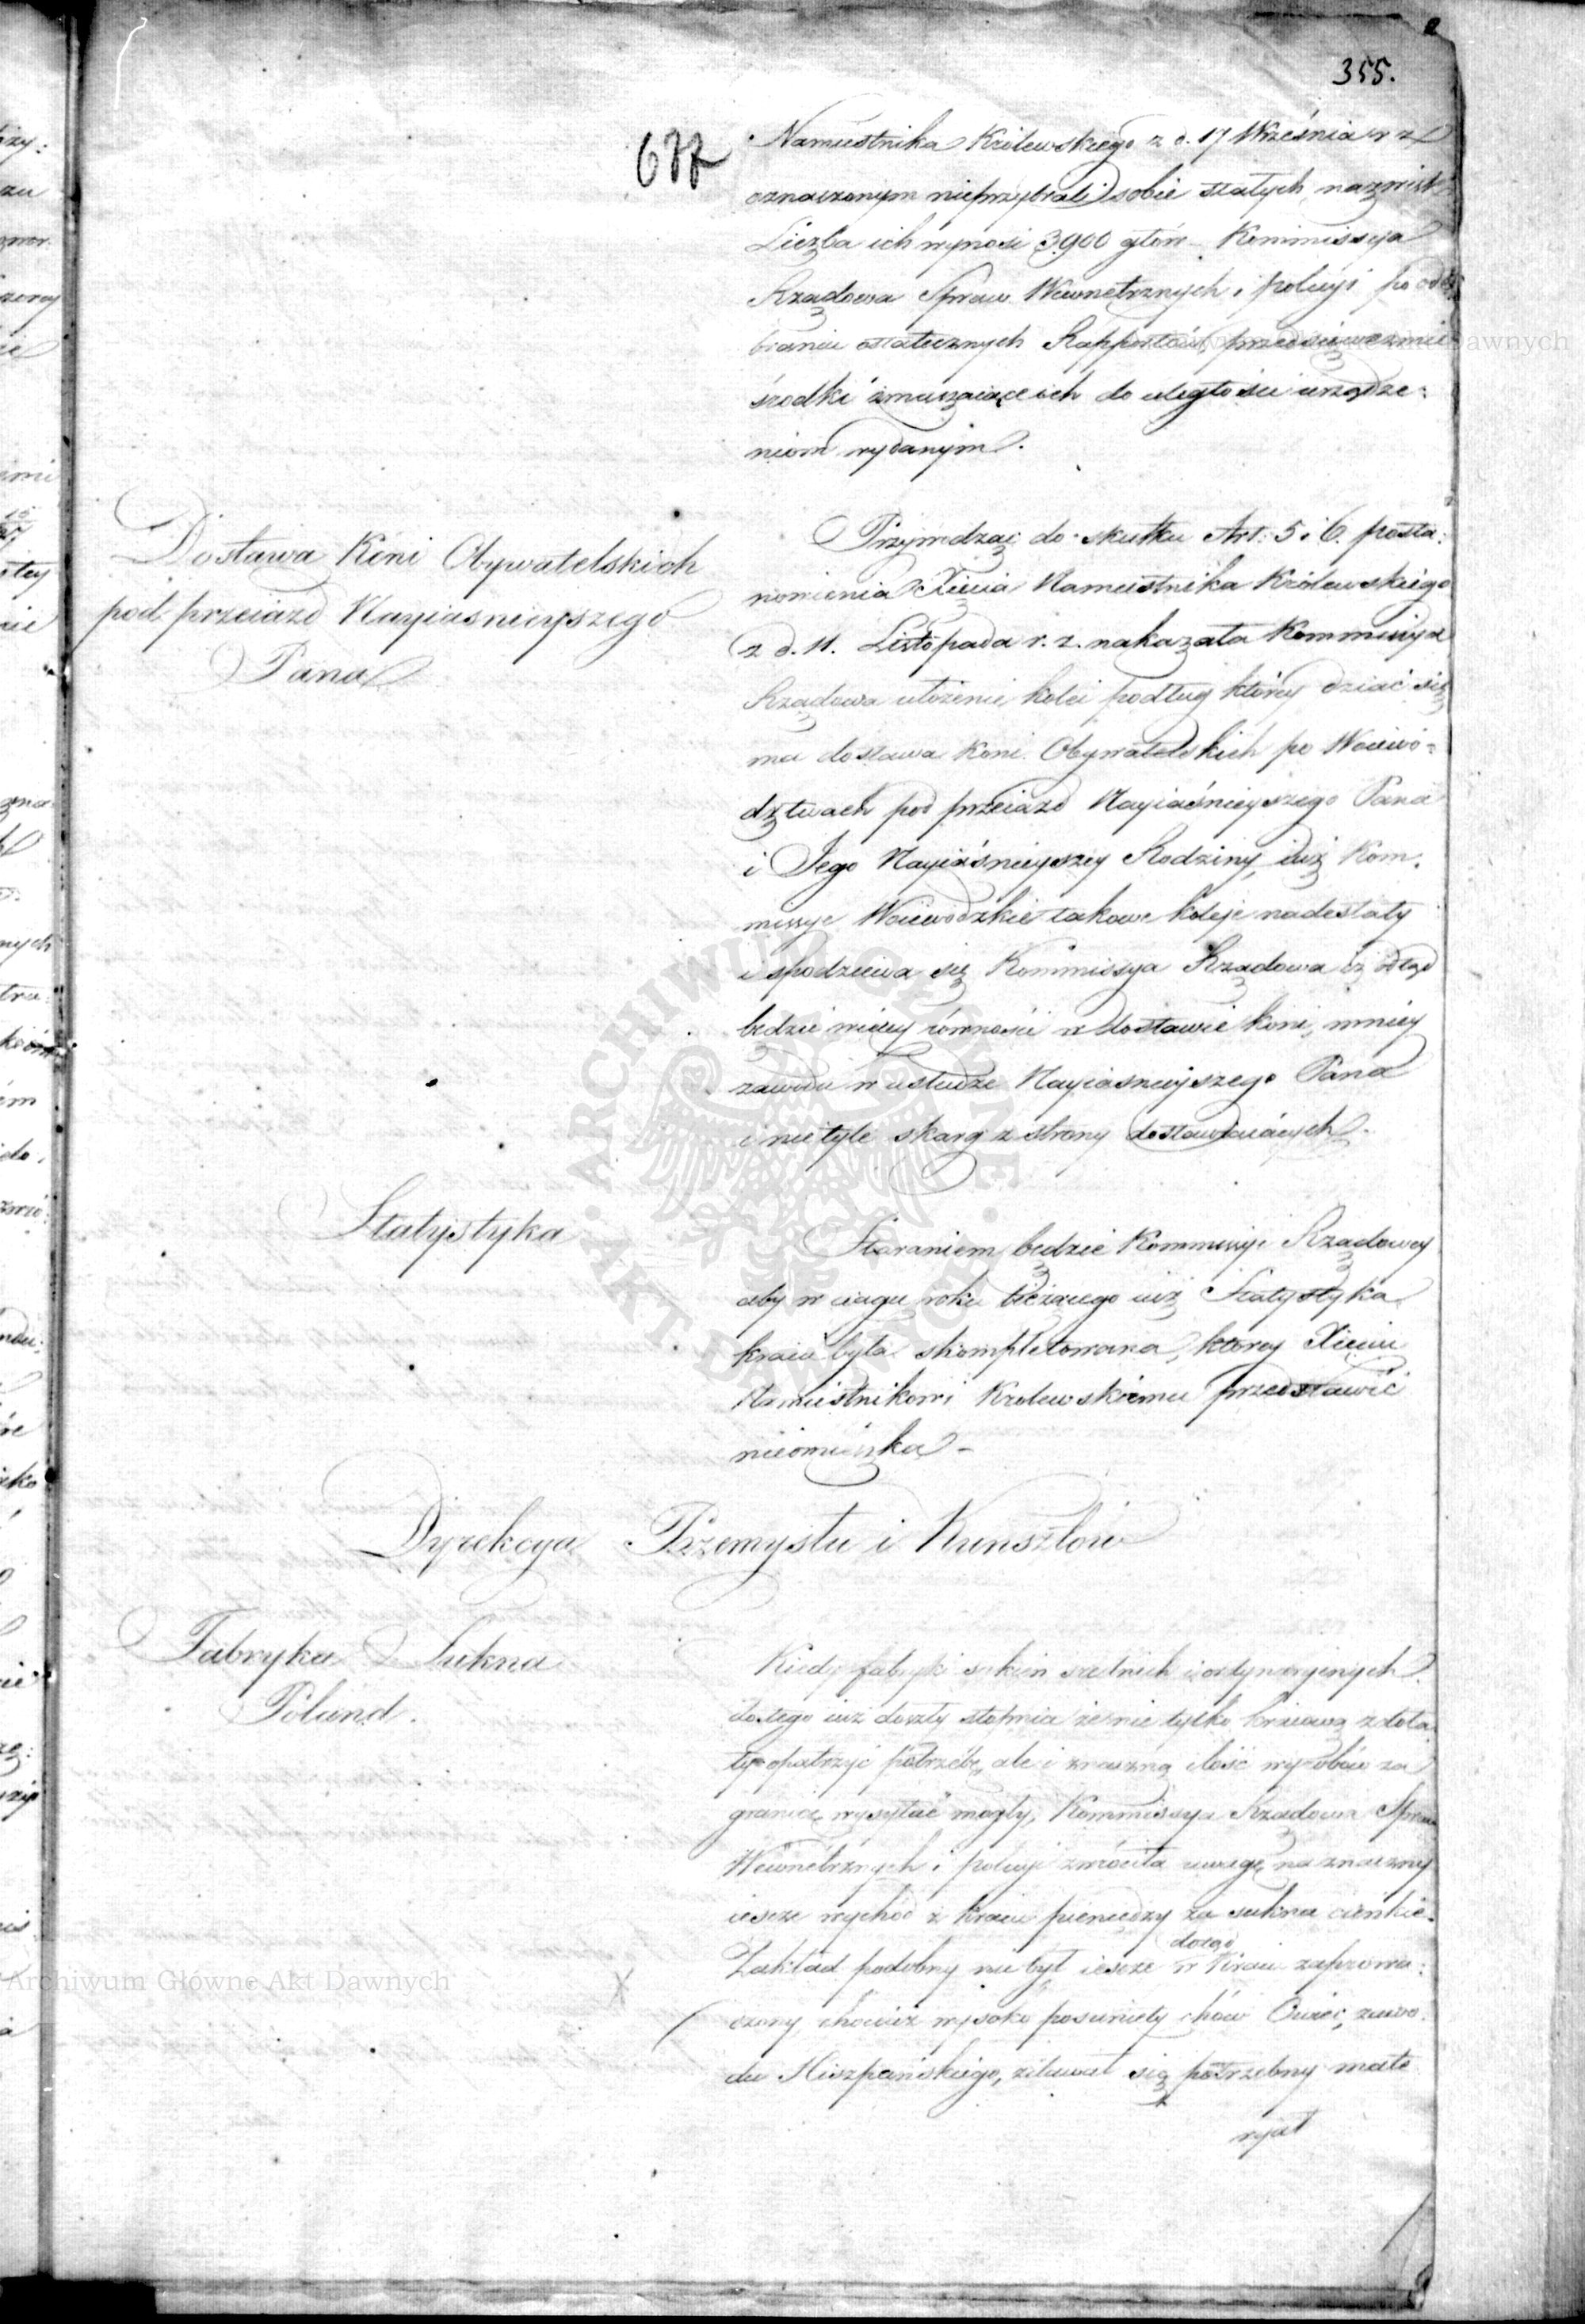 355.
677
Namiestnika Królewskiego z d. 17 Września r. z.
oznaczonym nieprzybrali sobie stałych nazwisk
Liczba ich wynosi 3900 głów. Kommissya
Rządowa Spraw Wewnętrznych i policyi po ode
braniu ostatecznych Rapportów, przedsięweźmie
środki zmuszaiące ich do uległości urządze:
niom wydanym.
Dostawa Koni Obywatelskich
pod przeiazd Nayiasnieyszego
Pana
Przywodząc do skutku Art: 5 i 6. posta:
nowienia Xięcia Namiestnika Królewskiego
z d. 11. Listopada r. z. nakazała Kommissya
Rządowa ułożenie kolei podług którey dziać się
ma dostawa Koni Obywatelskich po Woiewó=
dztwach pod przeiazd Nayiaśnieyszego Pana
i Jego Nayiaśnieyszey Rodziny, iuż Kom.
missye Woiewódzkie takowe koleje nadesłały
i spodziewa się Kommissya Rządowa iż odtąd
będzie więcey równości w dostawie koni, mniey
zawodu w usłudze Nayiasnieyszego Pana
i nie tyle skarg z strony dostawiaiących.
Statystyka
Staraniem będzie Kommissyi Rządowey
aby w ciągu roku bieżącego iuż Statystyka
kraiu była skompletowana, ktorey Xięciu
Namiestnikowi Krolewskiemu przedstawić
nieomieszka –
Dyrekcya Przemysłu i Kunsztów
Fabryka Sukna
Poland.
Kiedy fabryki sukien srednich i ordynaryinych
do tego iuż doszły stopnia że nie tylko kraiową zdoła
ły opatrzyć potrzebę, ale i znaczną ilość wyrobów za
granicę wysyłać mogły, Kommissya Rządowa Spraw
Wewnętrznych i policyi zwróciła uwagę na znaczny
ieszcze wychód z kraiu pieniędzy za sukna cienkie.
Zakład podobny nie był ieszcze dotąd w Kraiu zaprowa:
dzony, chociaż wysoko posunięty chów Owiec, zawo:
du Hiszpańskiego, zdawał się potrzebny mate
ryał
Archiwum Główne Akt Dawnych